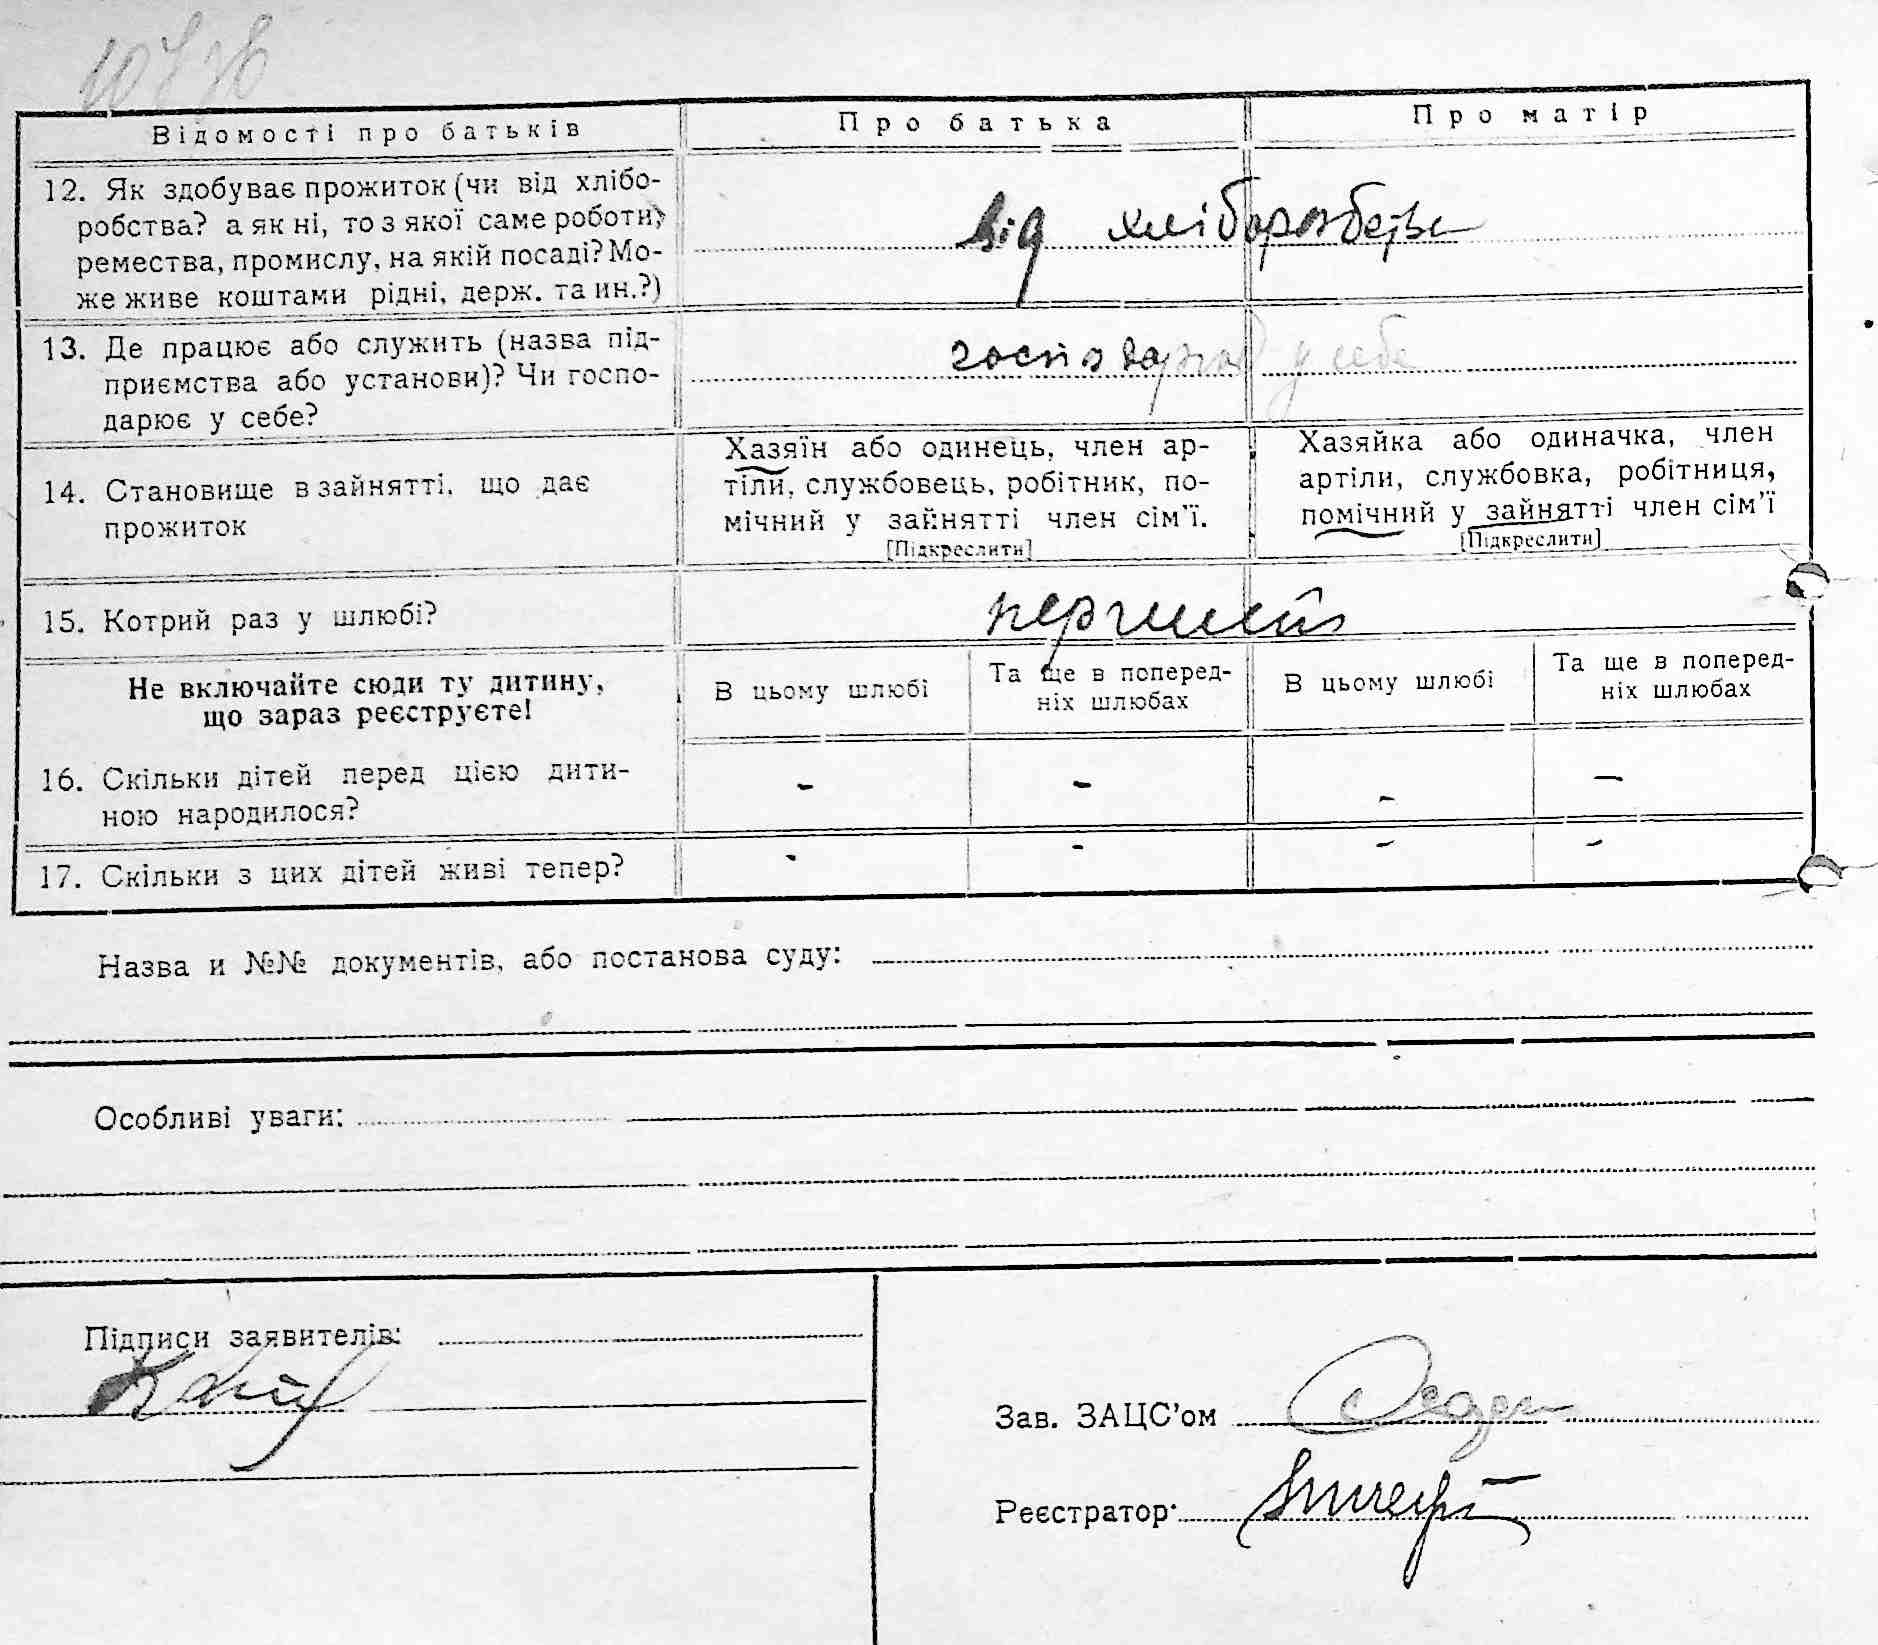 Відомості про батьків
Про батька
Про матір
12. Як здобуває прожиток (чи від хлібо-
робства? а як ні, то з якої саме роботи,
ремества, промислу, на якій посаді? Мо-
же живе коштами рідні, держ. та ин.?)
від хліборобства
13. Де працює або служить (назва під-
приємства або установи)? Чи госпо-
дарює у себе?
господарює у себе
14. Становище в зайнятті, що дає
прожиток
Хазяїн або одинець, член ар-
тіли, службовець, робітник, по-
мічний у зайнятті член сім'ї.
[Підкреслити]
Хазяйка або одиначка, член
артіли, службовка, робітниця,
помічний у зайнятті член сім'ї
[Підкреслити]
15. Котрий раз у шлюбі?
Не включайте сюди ту дитину,
що зараз реєструєте!
В цьому шлюбі
Та ще в поперед-
ніх шлюбах
В цьому шлюбі
Та ще в поперед-
ніх шлюбах
16. Скільки дітей перед цією дити-
ною народилося?
- - - -
17. Скільки з цих дітей живі тепер?
- - - -
Назва и №№ документів, або постанова суду:
Особливі уваги:
Підписи заявителів:
Зав. ЗАЦС'ом
Реєстратор